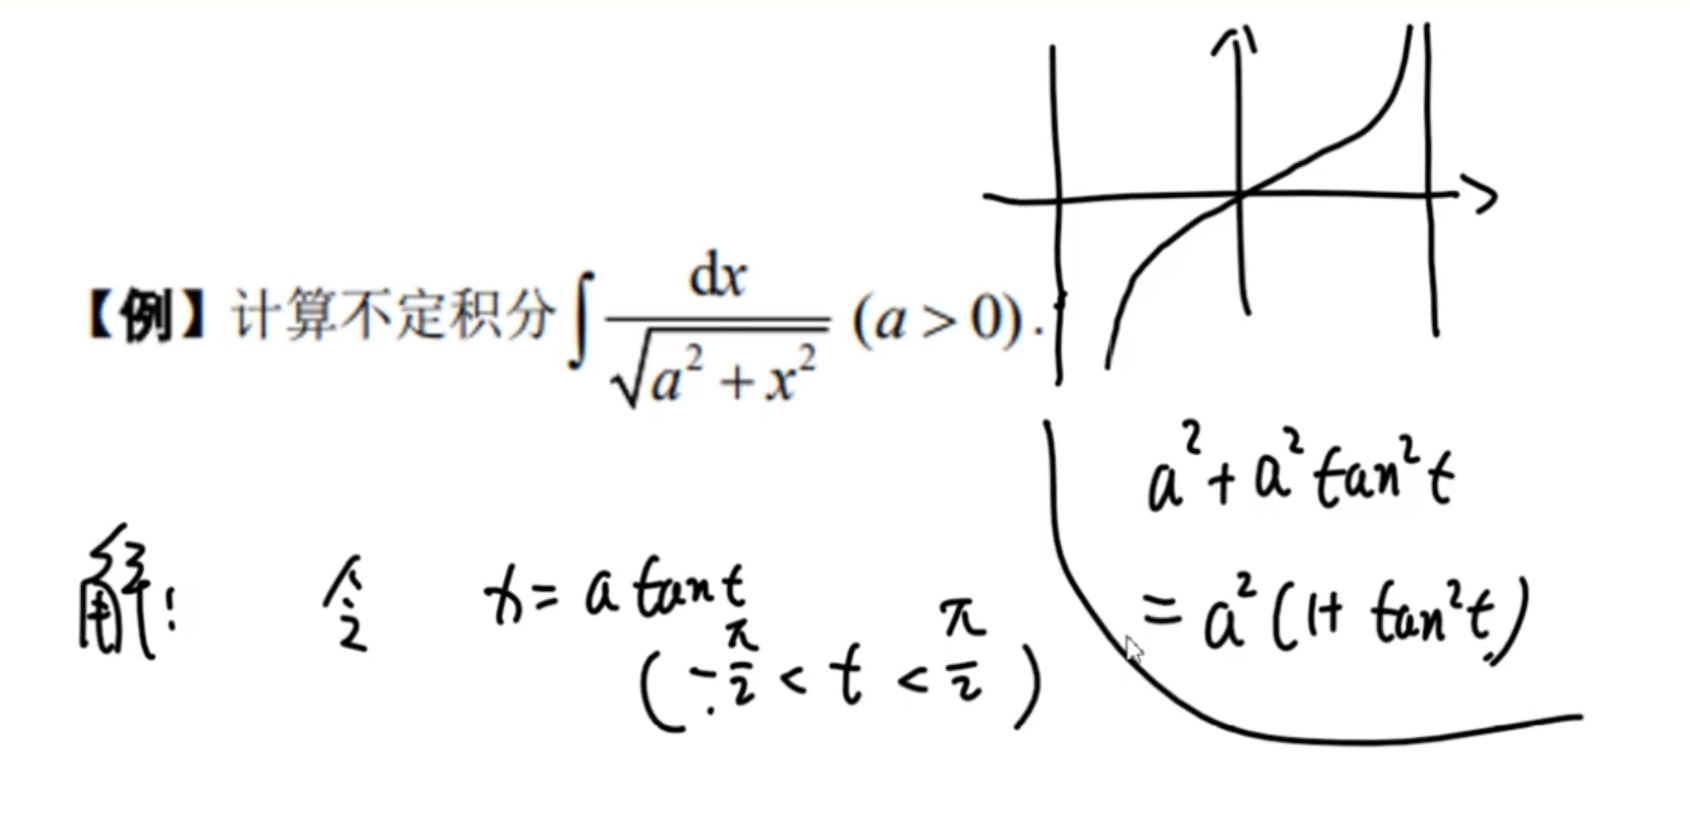 【例】计算不定积分∫dx/√(a²+x²) (a>0).
解: 令 x = a tan t
(-π/2 < t < π/2)
a² + a² tan² t
= a² (1+ tan² t)